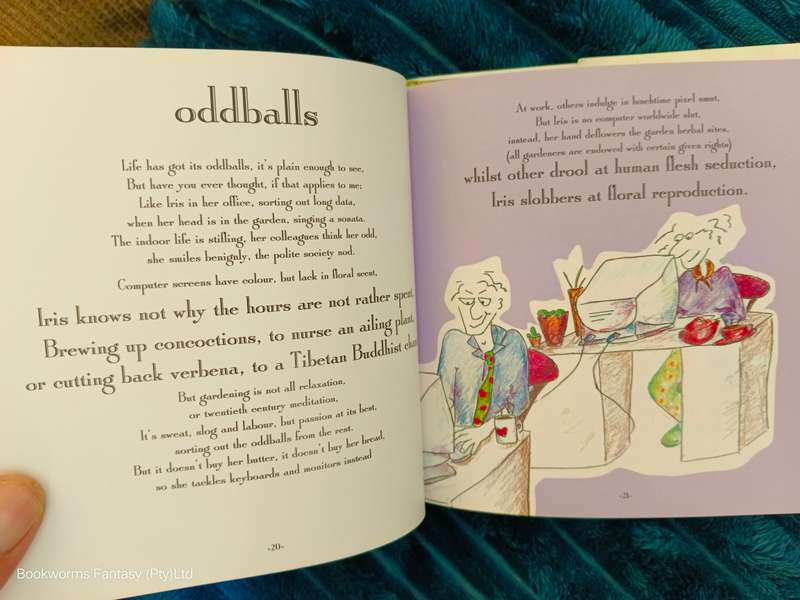 oddballs
Life has got its oddballs, it's plain enough to see,
But have you ever thought, if that applies to me;
Like Iris in her office, sorting out long data,
when her head is in the garden, singing a sonata.
The indoor life is stifling, her colleagues think her odd,
she smiles benignly, the polite society nod.
Computer screens have colour, but lack in floral scent,
Iris knows not why the hours are not rather spent,
Brewing up concoctions, to nurse an ailing plant,
or cutting back verbena, to a Tibetan Buddhist
But gardening is not all relaxation,
or twentieth century meditation,
It's sweat, slog and labour, but passion at its best,
sorting out the oddballs from the rest.
But it doesn't buy her butter, it doesn't buy her bread,
so she tackles keyboards and monitors instead
-20-
At work, others indulge in lunchtime pixel smut,
But Iris is no computer worldwide slut,
instead, her hand deflowers the garden herbal sites.
(all gardeners are endowed with certain given rights)
whilst other drool at human flesh seduction,
Iris slobbers at floral reproduction.
-21-
Bookworms Fantasy (Pty)Ltd